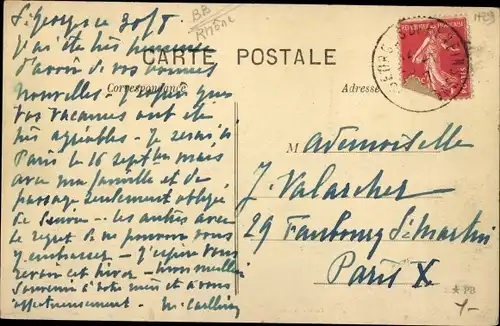 St Georges ce 30/8
J'ai été très
d'avoir de vos bonnes
nouvelles - J'espère que
vos vacances ont été
très agréables - Je serai à
Paris le 16 sept mais
avec ma famille et de
passage seulement obligé
de - les autres avec
le regret de ne pouvoir vous
y embrasser - J'espère vous
revoir cet hiver -
souvenir à votre mère et à vous
affectueusement -
BB
Rhône
CARTE POSTALE
Correspondance
Adresse
Mademoiselle
J. Valarcher
29 Faubourg St Martin
Paris X.
* PB